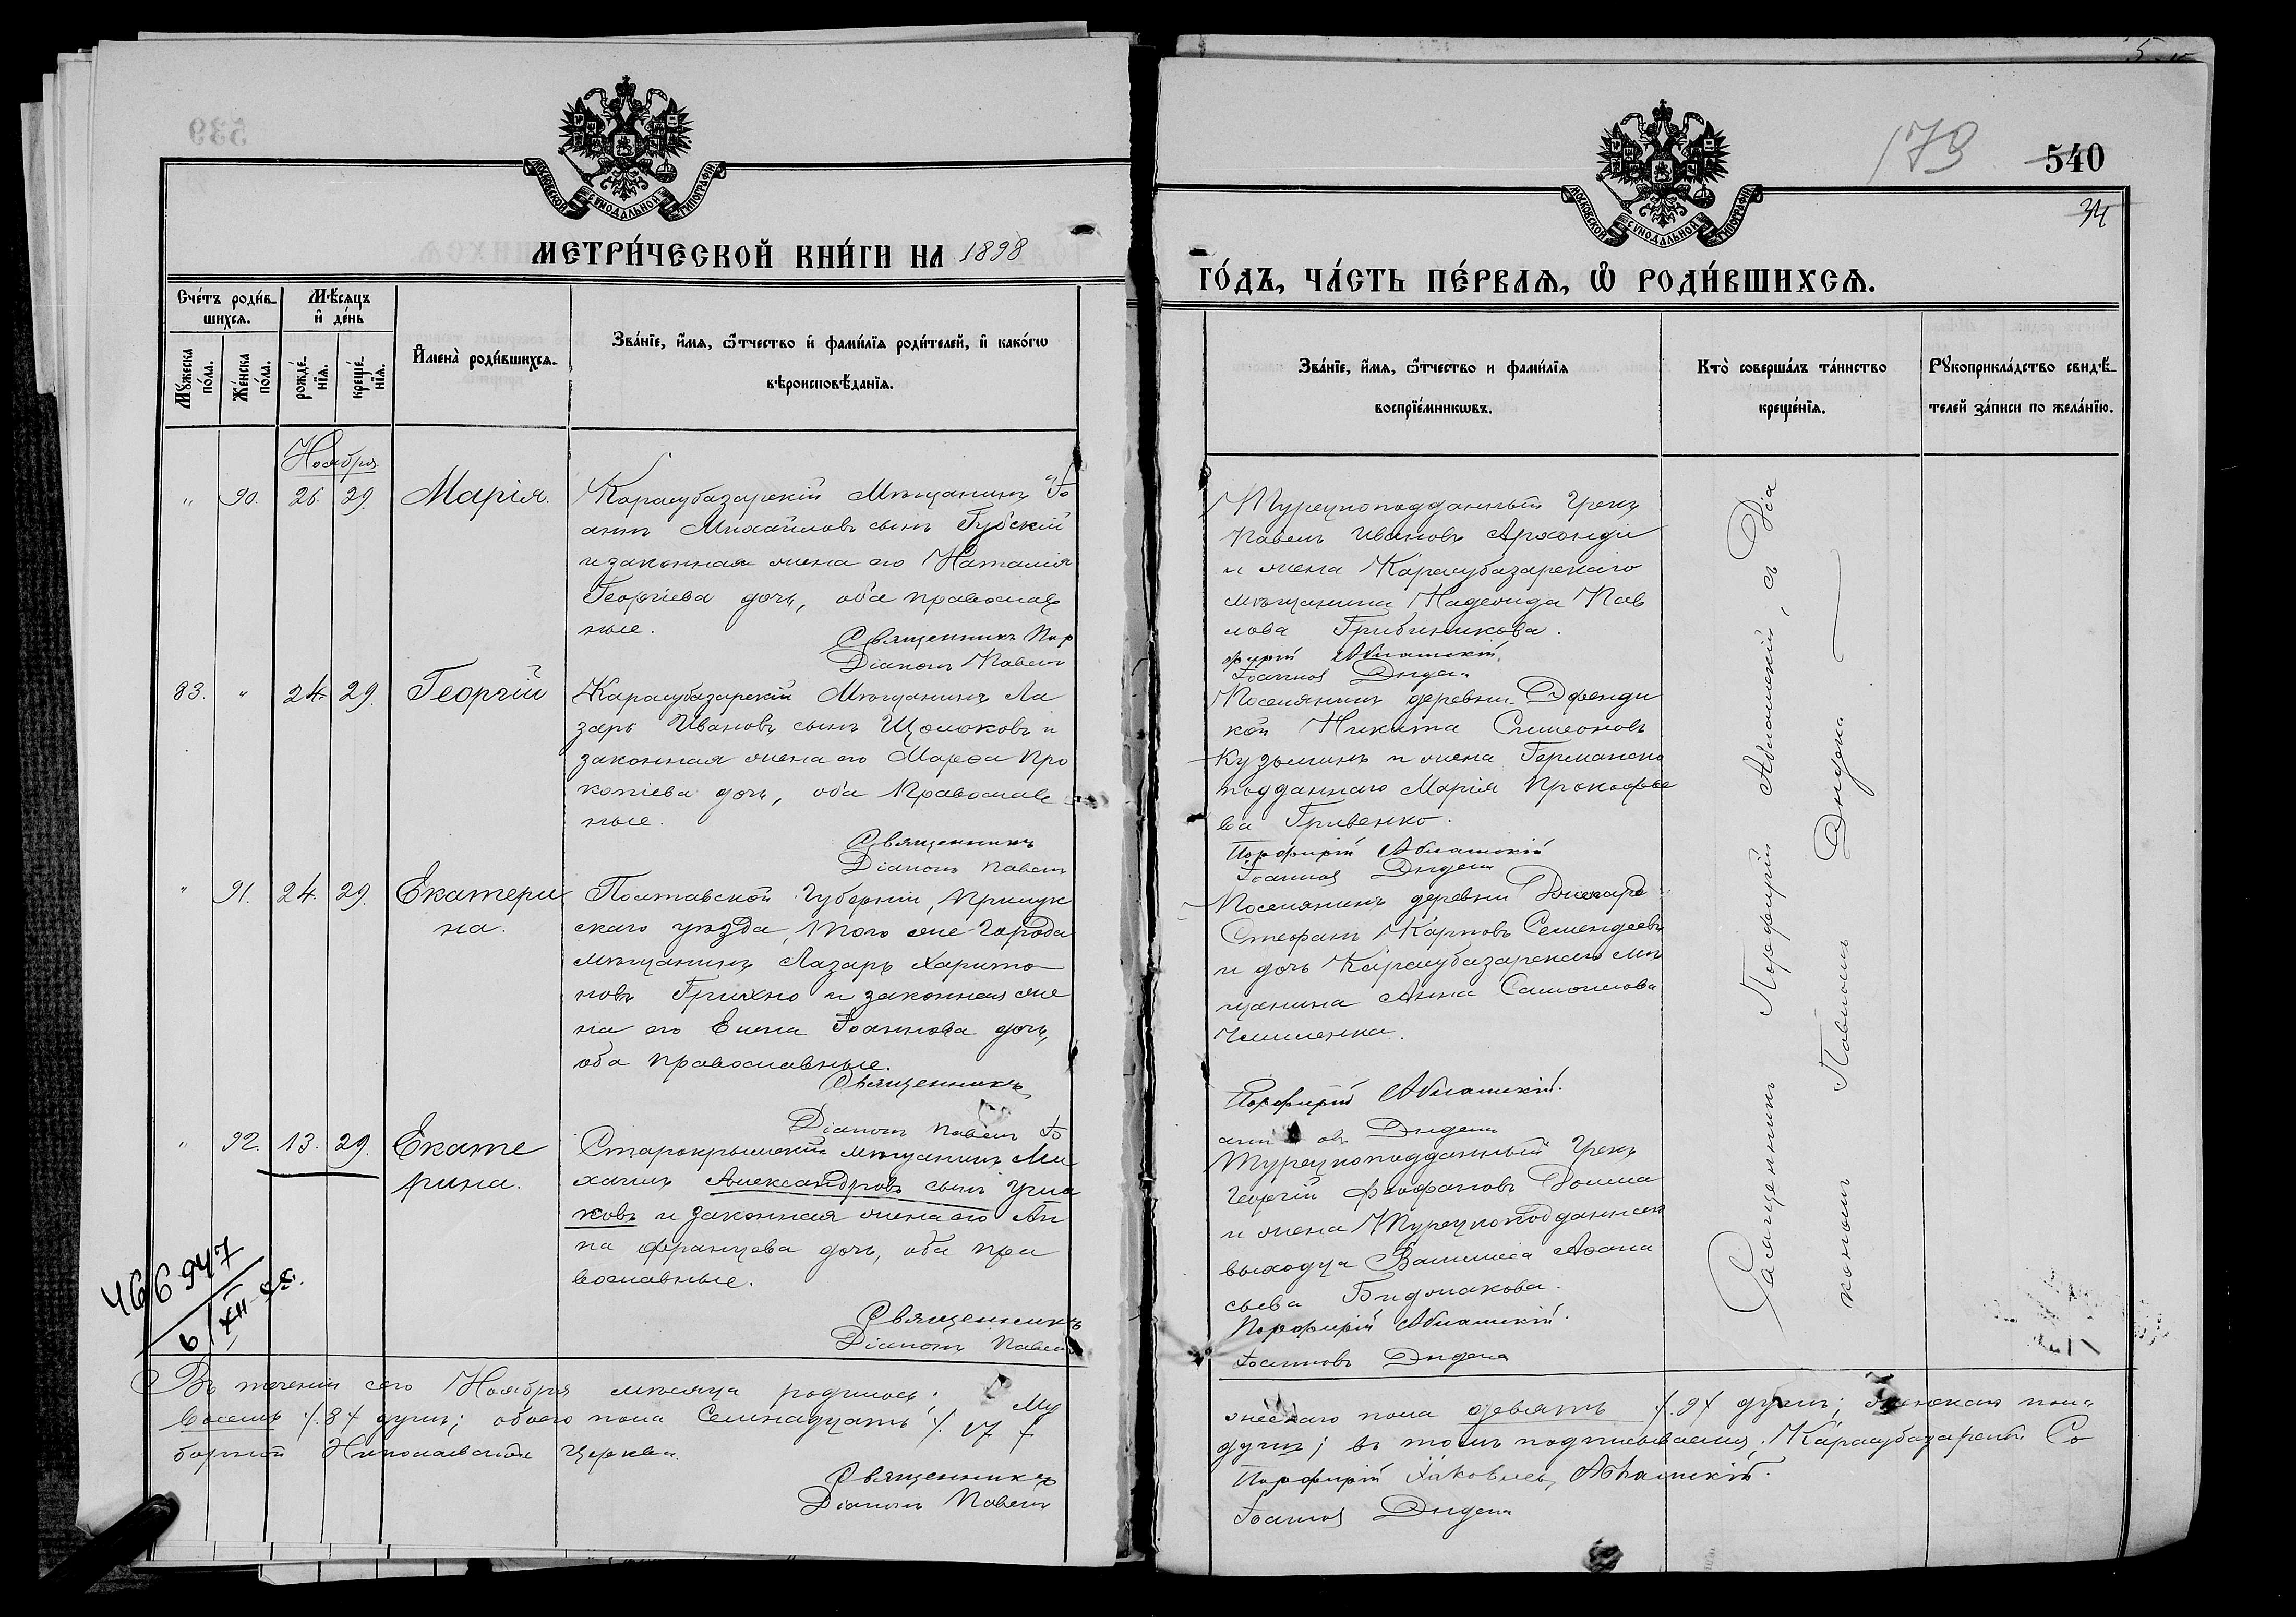 539
МОСКОВСКОЙ СѴНОДАЛЬНОЙ ТИПОГРАФІИ
МЕТРИ́ЧЕСКОЙ КНИ́ГИ НА 1898
Сче́тъ роди́в-
шихся.
Мѣ́сяцъ
и҆ де́нь
Мꙋ́жеска
по́ла.
Же́нска
по́ла.
рожде́-
нїя.
креще́-
нїя.
И҆мена̀ роди́вшихся.
Зва́нїе, и҆́мя, ѻ҆́тчество и҆ фами́лїя роди́телей, и҆ како́гѡ
вѣроисповѣ́данїя.
Ноября
" 90. 26. 29. Марія.
Карасубазарскій Мѣщанинъ Іо
аннъ Михайловъ сынъ Губскій
и законная жена его Наталія
Георгіева дочь, оба православ
ные.
Священникъ Пор
Діаконъ Павелъ
83. " 24. 29. Георгій
Карасубазарскій Мѣщанинъ Ла
зарь Ивановъ сынъ Щолоковъ и
законная жена его Марѳа Про
копіева дочь, оба Православ
ные.
Священникъ
Діаконъ Павелъ
" 91. 24. 29. Екатери
на.
Полтавской Губерніи, Прилук
скаго уѣзда, того же города
мѣщанинъ Лазарь Харито
новъ и законная же
на его Елена Іоаннова дочь,
оба православные.
Священникъ
Діаконъ Павелъ Іо
" 92. 13. 29. Екате
рина.
Старокрымскій мѣщанинъ Ми
хаилъ Александровъ сынъ
ковъ и законная жена его Ан
на Францева дочь, оба пра
вославные.
Священникъ
Діаконъ Павелъ
466947
6/XII
Въ теченіи сего Ноября мѣсяца родилось: Му
восемь /.8/ душъ; обоего пола Семнадцать /.17/
борной Николаевской Церкви.
Священникъ
Діаконъ Павелъ
179
540
34
МОСКОВСКОЙ СѴНОДАЛЬНОЙ ТИПОГРАФІИ
ГО́ДЪ, ЧА́СТЬ ПЕ́РВАЯ, Ѡ҆ РОДИ́ВШИХСЯ.
Зва́нїе, и҆́мя, ѻ҆́тчество и фами́лїя
воспрїе́мникѡвъ.
Кто̀ соверша́лъ та́инство
креще́нїя.
Рꙋкоприкла́дство свидѣ́-
телей за́писи по жела́нїю.
Турецкоподданный Грекъ
Павелъ Ивановъ Архонди
и жена Карасубазарскаго
мѣщанина Надежда Пав
лова Грибиникова.
фирій Аблашскій
Іоанновъ
Поселянинъ деревни Эфенди
кой Никита Симеоновъ
Кузьминъ и жена Германско
подданнаго Марія Прокофье
ва Гривенко.
Порфирій Аблашскій
Іоанновъ
Поселянинъ деревни
Стефанъ Карповъ
и дочь Карасубазарскаго мѣ
щанина Анна Самоилова
Порфирій Аблашскій.
Турецкоподданный Грекъ
Георгій Феофановъ
и жена Турецкоподданнаго
выходца
сьева
Порфирій Аблашскій.
Іоанновъ
Священникъ Порфирій Аблашскій, съ Діа
кономъ Павломъ
жескаго пола девять /.9/ душъ; женскаго пола
душъ; въ томъ подписываемся, Карасубазарской Со
Порфирій Яковлевъ Аблашскій.
Іоанновъ